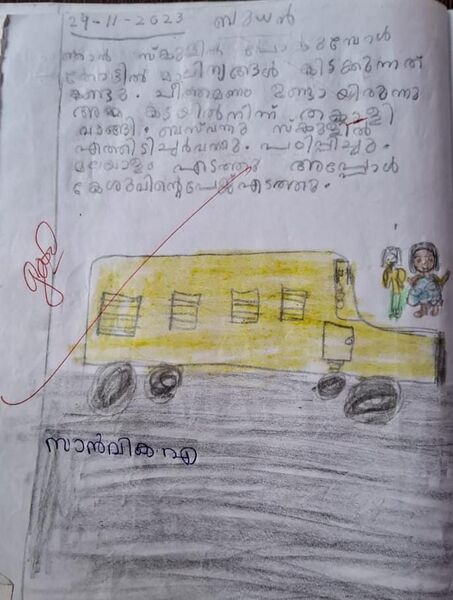 29-11-2023 ബുധൻ
ഞാൻ സ്കൂളിൽ പോകുമ്പോൾ
തോട്ടിൽ മാലിന്യങ്ങൾ കിടക്കുന്നത്
കണ്ടു. ചീത്തമണം ഉണ്ടായിരുന്നു
അമ്മ കടയിൽനിന്ന് തക്കാളി
വാങ്ങി. ബസ് വന്നു സ്കൂളിൽ
എത്തി ടീച്ചർവന്നു. പഠിപ്പിച്ചു.
മലയാളം എടുത്തു അപ്പോൾ
കേശുവിന്റെപേജ്എടുത്തു.
സാൻവിക എ